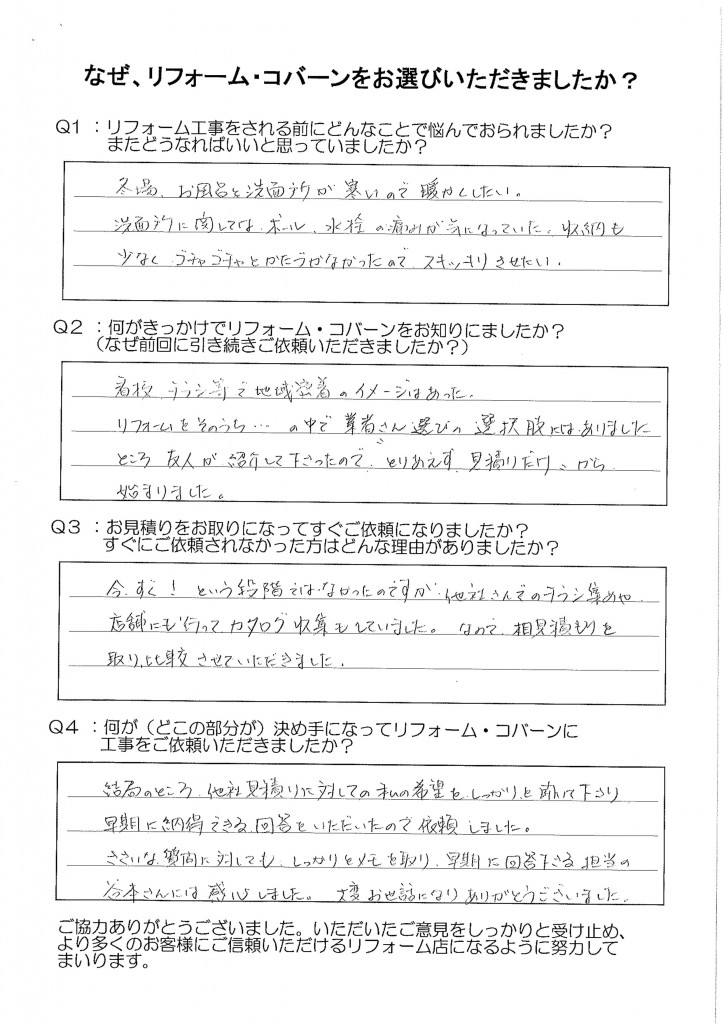 なぜ、リフォーム・コバーンをお選びいただきましたか？
Q1：リフォーム工事をされる前にどんなことで悩んでおられましたか？
またどうなればいいと思っていましたか？
冬場、お風呂と洗面所が寒いので暖かくしたい。
洗面所に関しては、ボール、水栓の痛みが気になっていた。収納も
少なく、ゴチャゴチャとかたづかなかったので、スキッリさせたい。
Q2：何がきっかけでリフォーム・コバーンをお知りにましたか？
（なぜ前回に引き続きご依頼いただきましたか？）
看板、チラシ等で地域密着のイメージはあった。
リフォームをそのうち…の中で業者さん選びの選択肢にはありました
ところ友人が紹介して下さったので、"とりあえず、見積りだけ"から
始まりました。
Q3：お見積りをお取りになってすぐご依頼になりましたか？
すぐにご依頼されなかった方はどんな理由がありましたか？
今すぐ！という段階ではなかったのですが、他社さんでのチラシ集めや
店舗にも行ってカタログ収集もしていました。なので、相見積もりを
取り、比較させていただきました。
Q4：何が（どこの部分が）決め手になってリフォーム・コバーンに
工事をご依頼いただきましたか？
結局のところ、他社見積りに対しての私の希望を、しっかりと聞いて下さり
早期に納得できる回答をいただいたので依頼しました。
ささいな質問に対しても、しっかりとメモを取り、早期に回答下さる担当の
谷本さんには感心しました。大変お世話になりありがとうございました。
ご協力ありがとうございました。いただいたご意見をしっかりと受け止め、
より多くのお客様にご信頼いただけるリフォーム店になるように努力して
まいります。